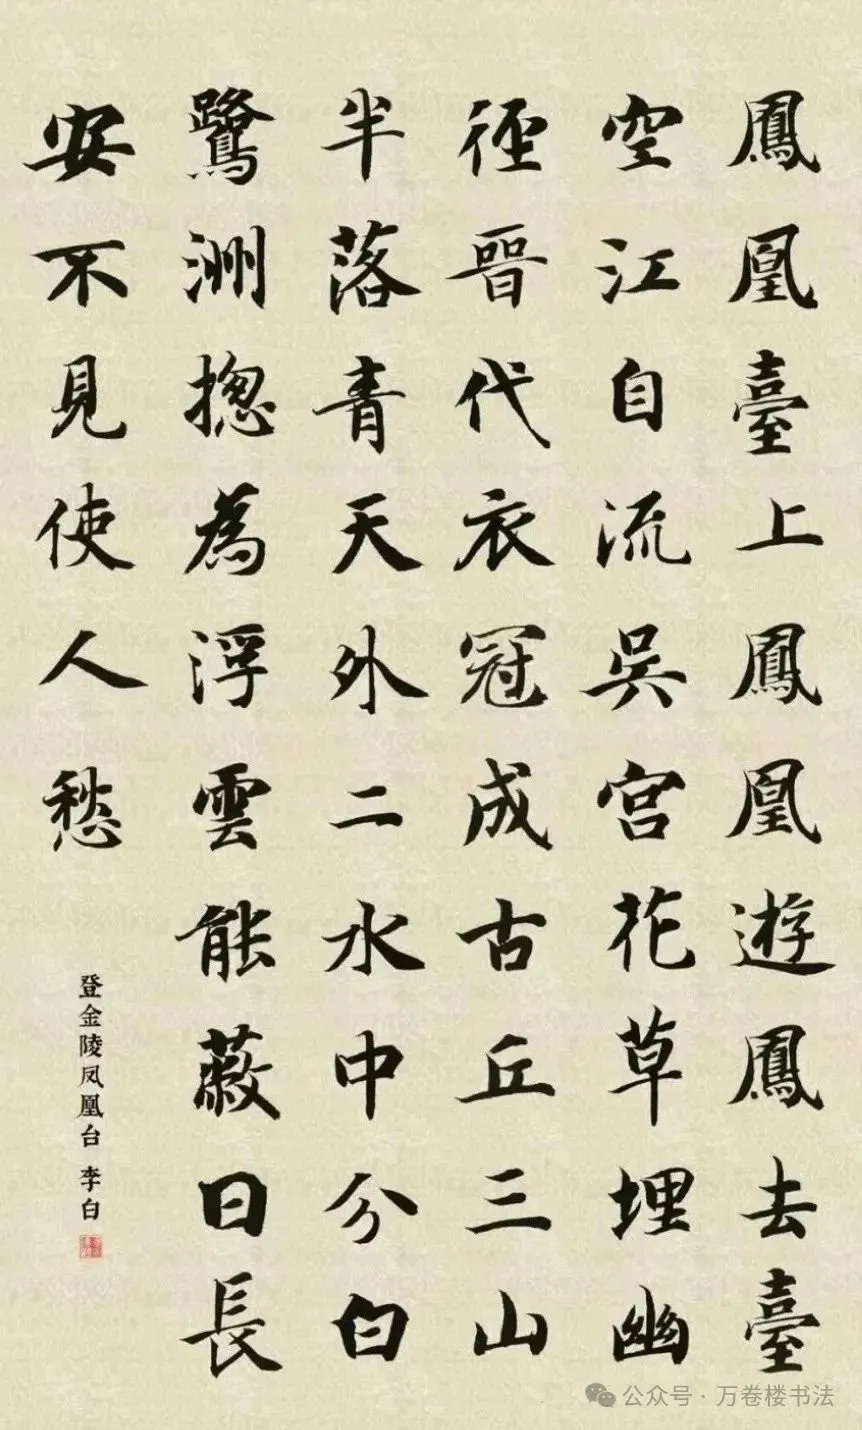 鳳凰臺上鳳凰遊鳳去臺
空江自流吳宮花草埋幽
徑晉代衣冠成古丘三山
半落青天外二水中分白
鷺洲揔為浮雲能蔽日長
安不見使人愁
登金陵凤凰台 李白
公众号·万卷楼书法